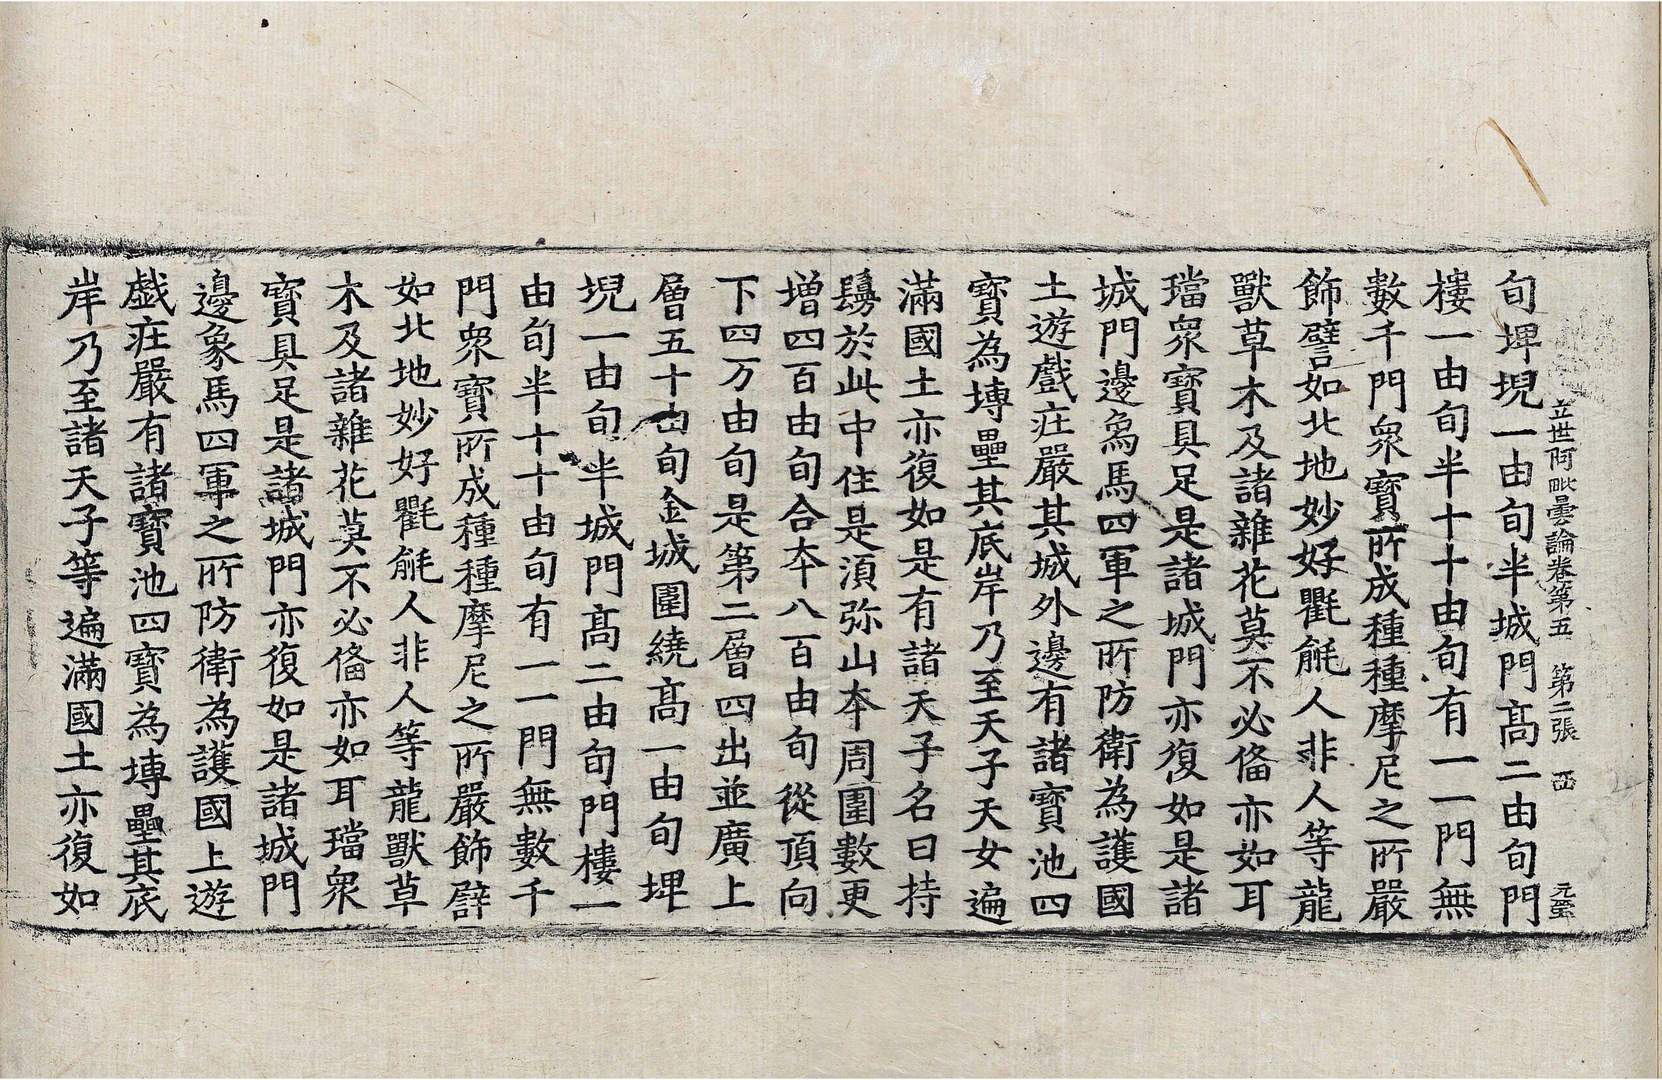 立世阿毗曇論卷第五 第二張
旬埤堄一由旬半城門髙二由旬門
樓一由旬半十十由旬有一一門無
數千門衆寶所成種種摩尼之所嚴
飾譬如北地妙好氍毹人非人等龍
獸草木及諸雜花莫不必俻亦如耳
璫衆寶具足是諸城門亦復如是諸
城門邊象馬四軍之所防衛為護國
土遊戲莊嚴其城外邊有諸寶池四
寶為塼壘其底岸乃至天子天女遍
滿國土亦復如是有諸天子名曰持
鬘於此中住是湏弥山本周圍數更
增四百由旬合本八百由旬從頂向
下四万由旬是第二層四出並廣上
層五十由旬金城圍繞髙一由旬埤
堄一由旬半城門髙二由旬門樓一
由旬半十十由旬有一一門無數千
門衆寶所成種種摩尼之所嚴飾譬
如北地妙好氍毹人非人等龍獸草
木及諸雜花莫不必俻亦如耳璫衆
寶具足是諸城門亦復如是諸城門
邊象馬四軍之所防衛為護國土遊
戲莊嚴有諸寶池四寶為塼壘其底
岸乃至諸天子等遍滿國土亦復如